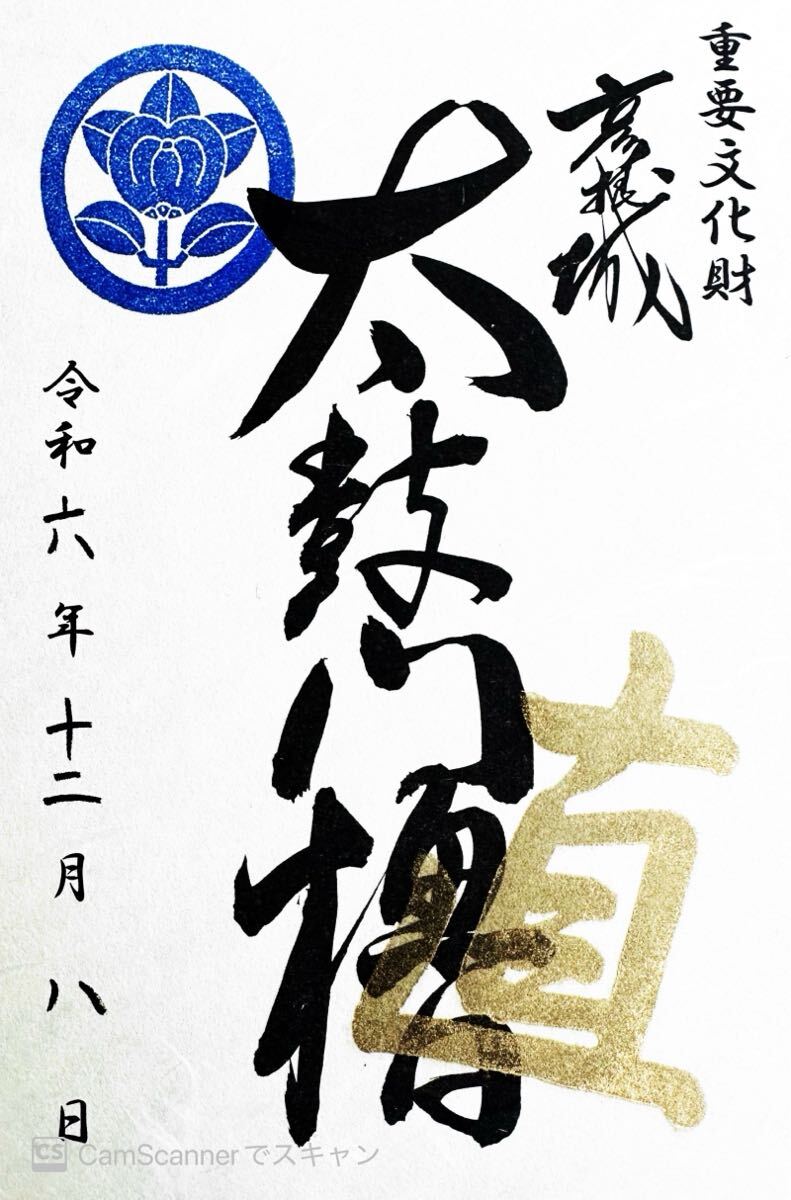 重要文化財
彦根城
太鼓門櫓
直
令和六年十二月八日
CS CamScannerでスキャン